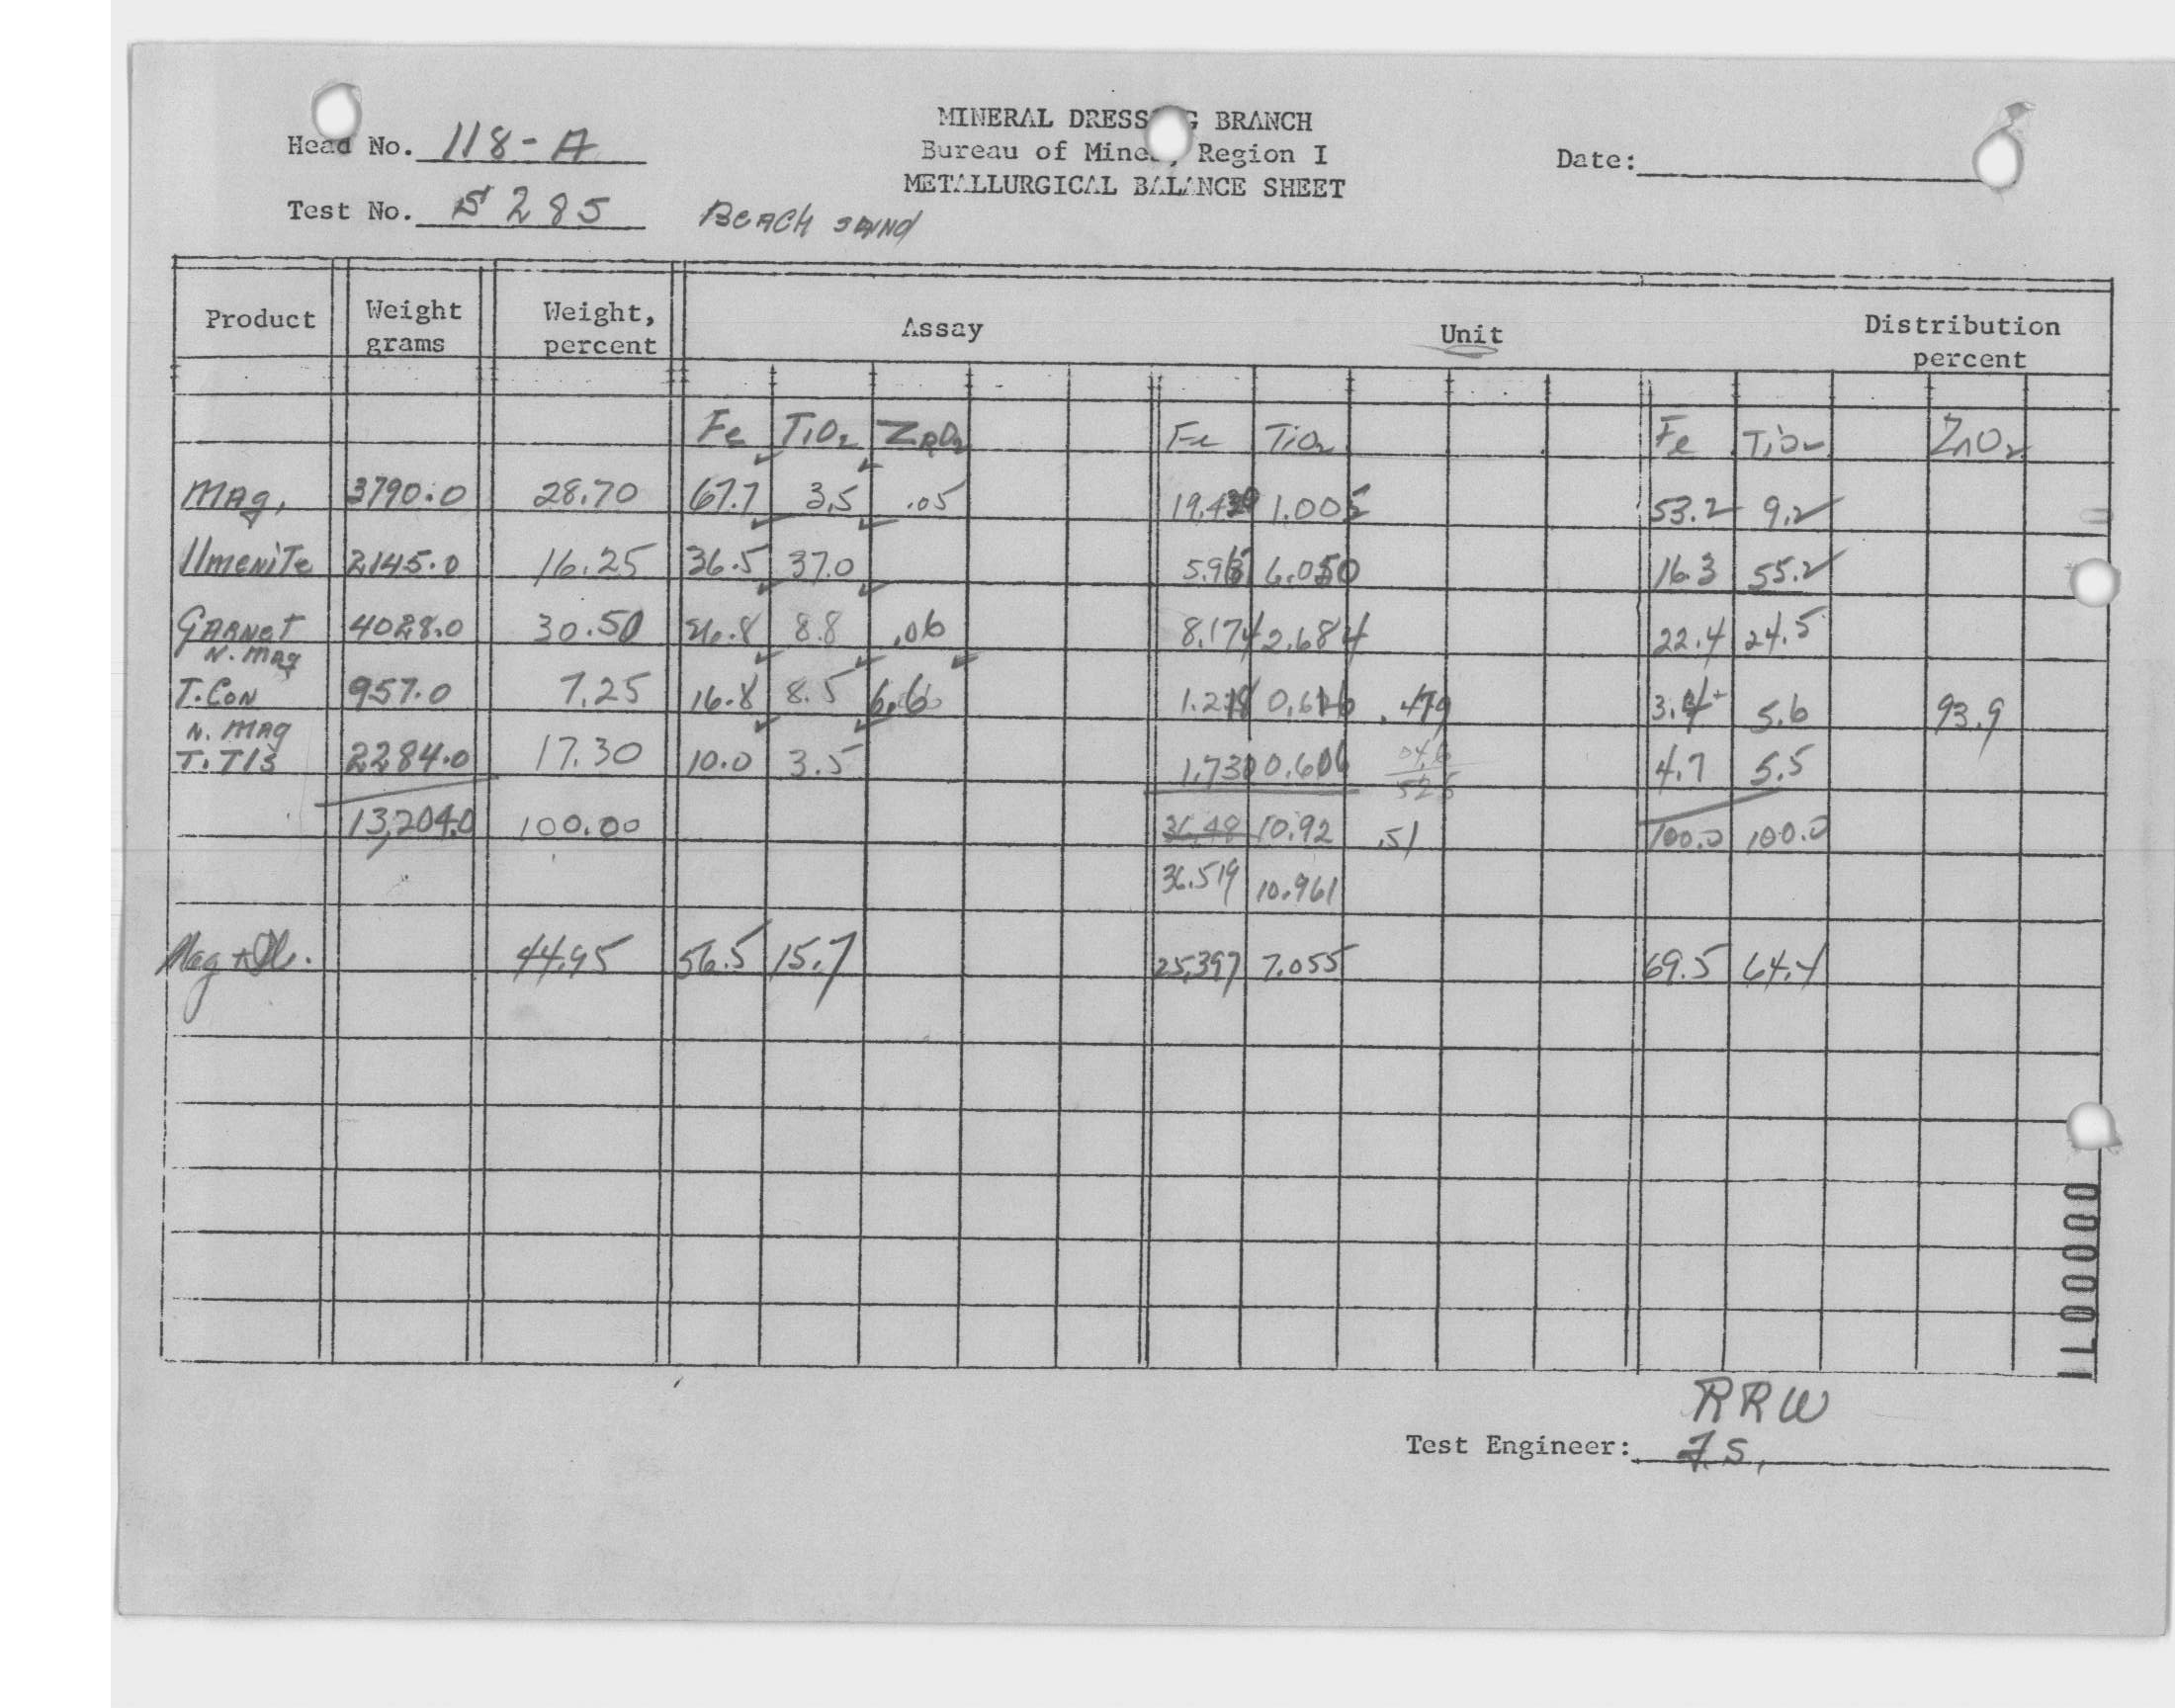 MINERAL DRESS G BRANCH
Head No. 118-A Bureau of Mines, Region I Date:
METALLURGICAL BALANCE SHEET
Test No. S 285 BEACH SAND
Product Weight grams Weight, percent Assay Unit Distribution percent
Fe TiO2 ZRO2 Fe TiO2 Fe TiO2 ZrO2
MAg, 3790.0 28.70 67.7 3.5 .05 19.429 1.005 53.2 9.2
IlmeniTe 2145.0 16.25 36.5 37.0 6.050 16.3 55.2
GARNeT 4028.0 30.50 26.8 8.8 .06 8.174 2.684 22.4 24.5
N. MAg
T. CON 957.0 7.25 16.8 8.5 6.6 1.218 0.616 .479 3.4 5.6 93.9
N. MAg
T. Tls 2284.0 17.30 10.0 3.5 1.730 0.606 046 4.7 5.5
525
13,204.0 100.00 36.48 10.92 .51 100.0 100.0
36.519 10.961
Mag + Il. 44.95 56.5 15.7 25.397 7.055 69.5 64.4
1L00000
RRW
Test Engineer: J.S.